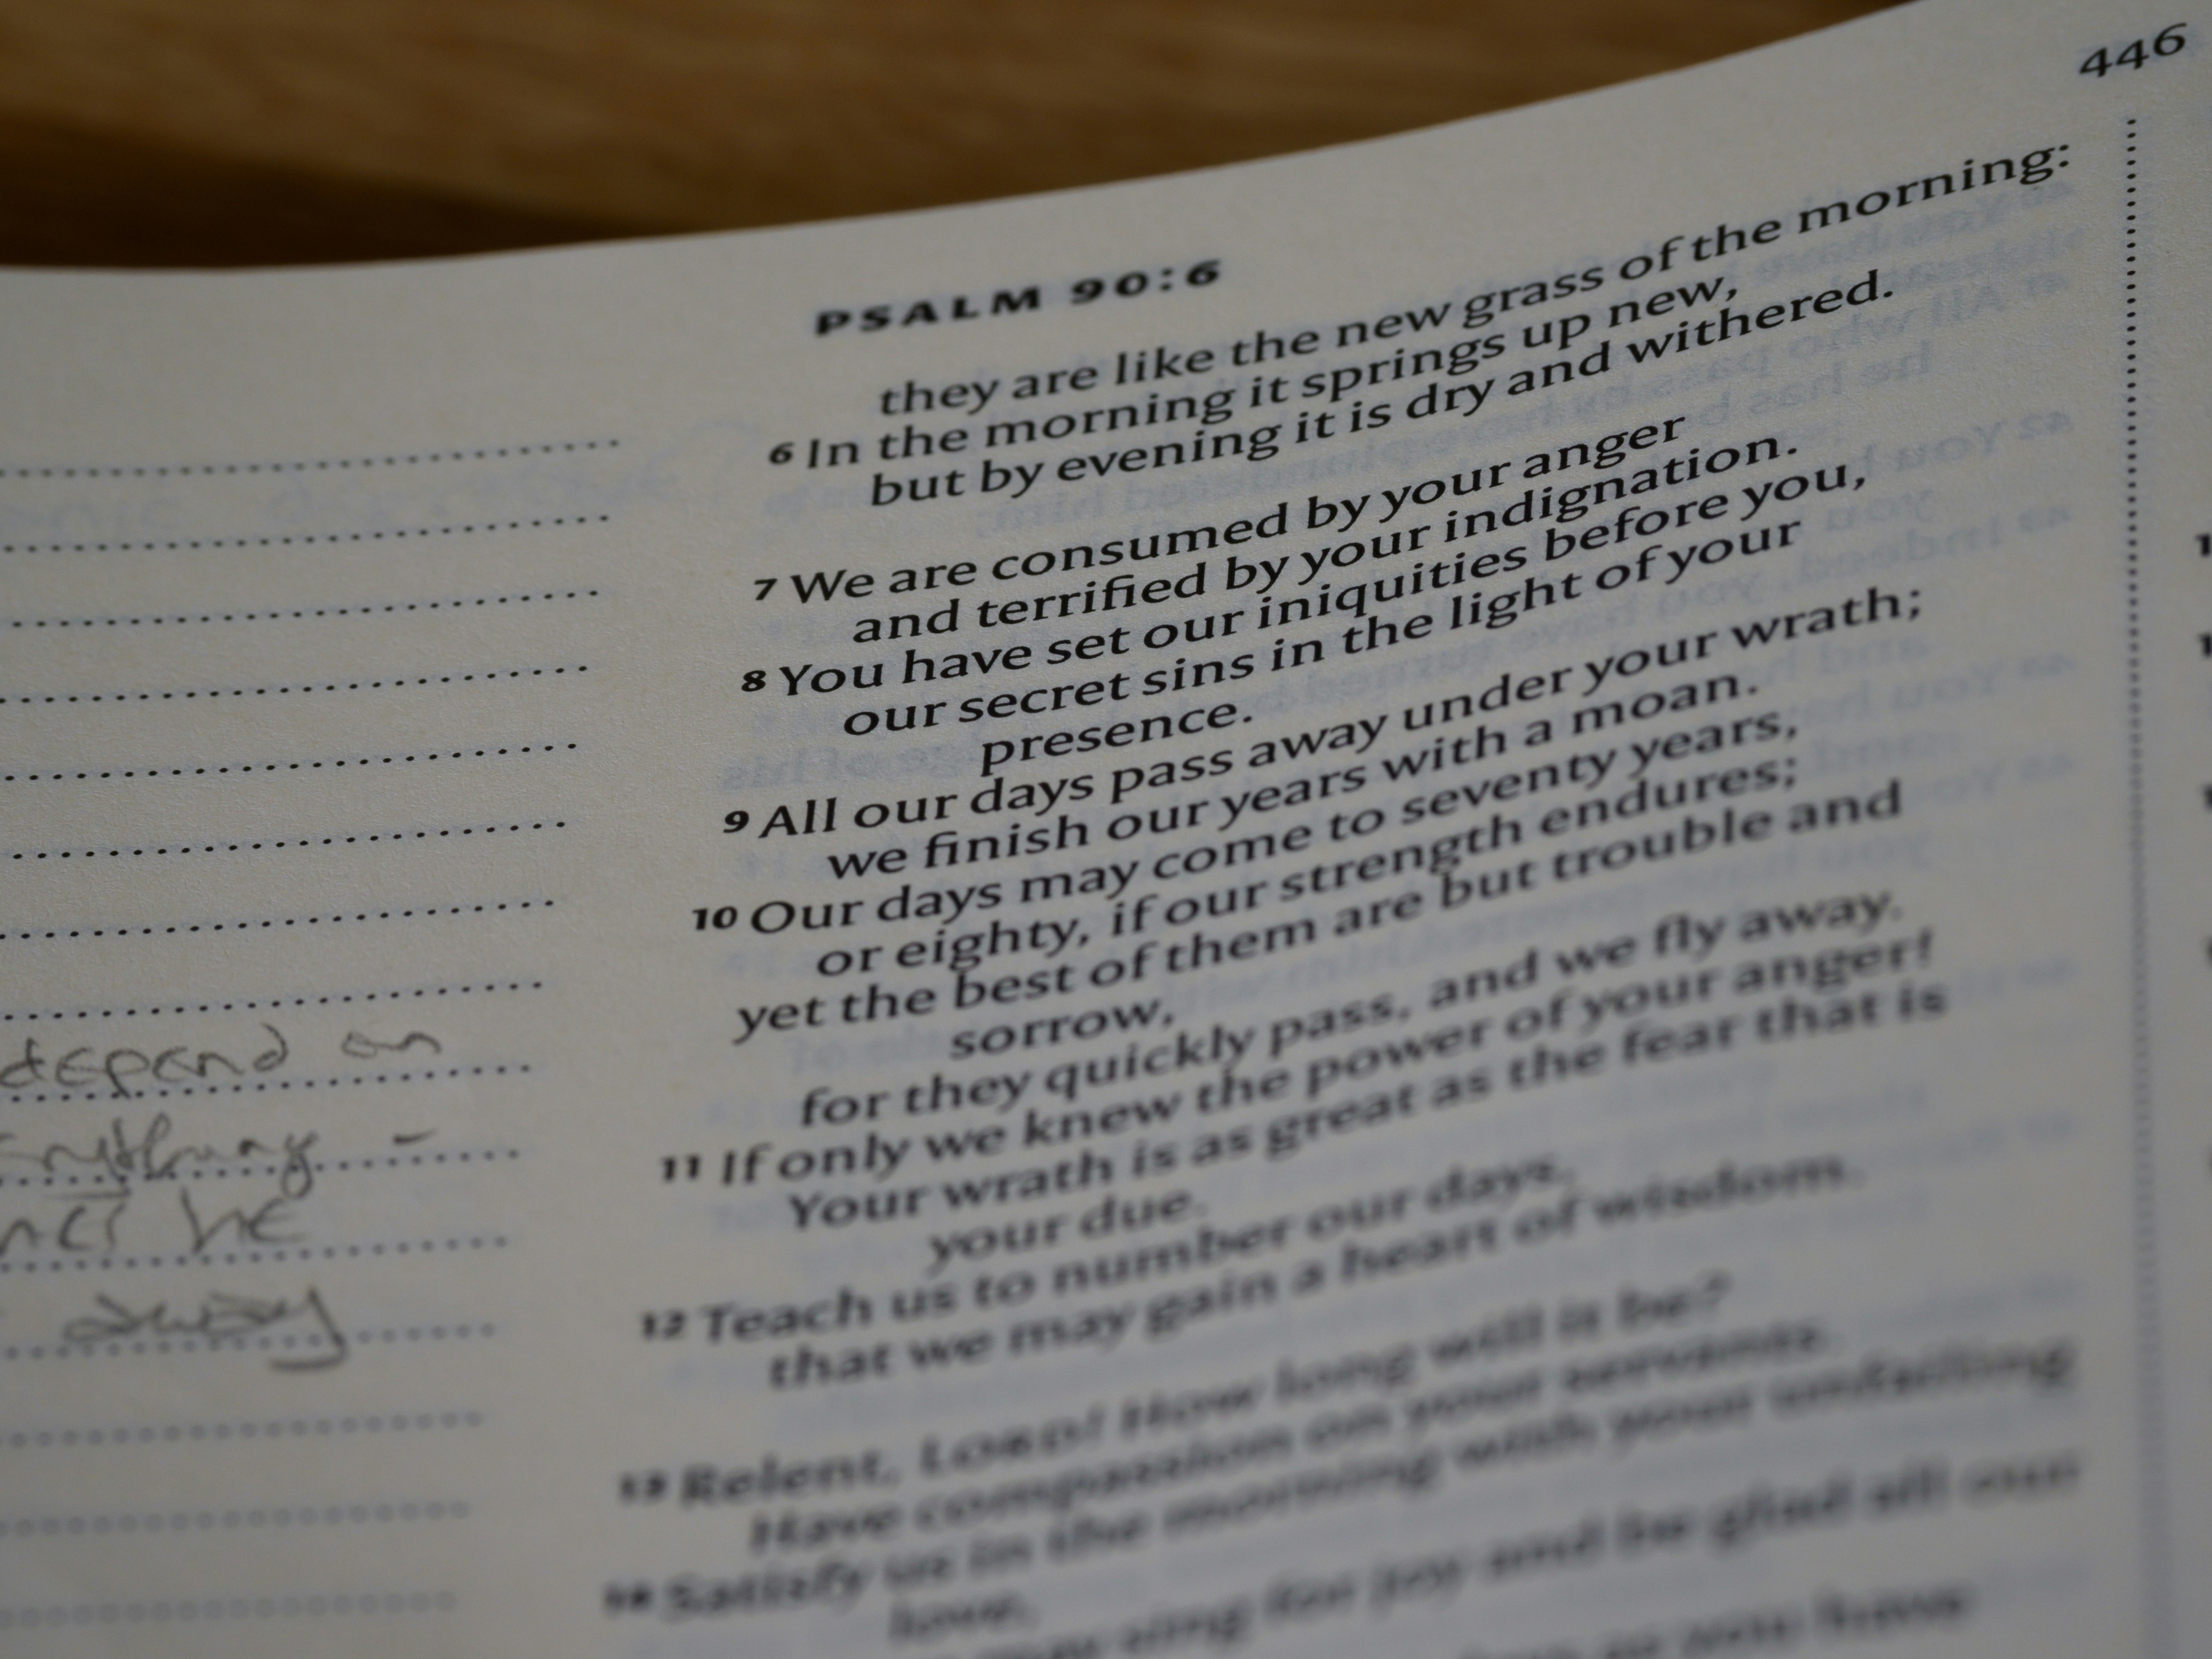 446
PSALM 90:6
they are like the new grass of the morning:
6 In the morning it springs up new,
but by evening it is dry and withered.
7 We are consumed by your anger
and terrified by your indignation.
8 You have set our iniquities before you,
our secret sins in the light of your
presence.
9 All our days pass away under your wrath;
we finish our years with a moan.
10 Our days may come to seventy years,
or eighty, if our strength endures;
yet the best of them are but trouble and
sorrow,
for they quickly pass, and we fly away.
11 If only we knew the power of your anger!
Your wrath is as great as the fear that is
your due.
12 Teach us to number our days,
that we may gain a heart of wisdom.
13 Relent, LORD! How long will it be?
Have compassion on your servants.
14 Satisfy us in the morning with your unfailing
love,
sing for joy and be glad all our
as you have
depend on
he
away